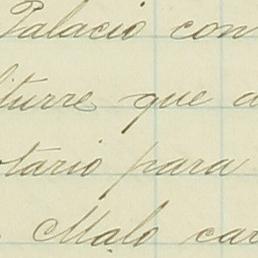 Palacio con
iturre que a
otario para
Malo car